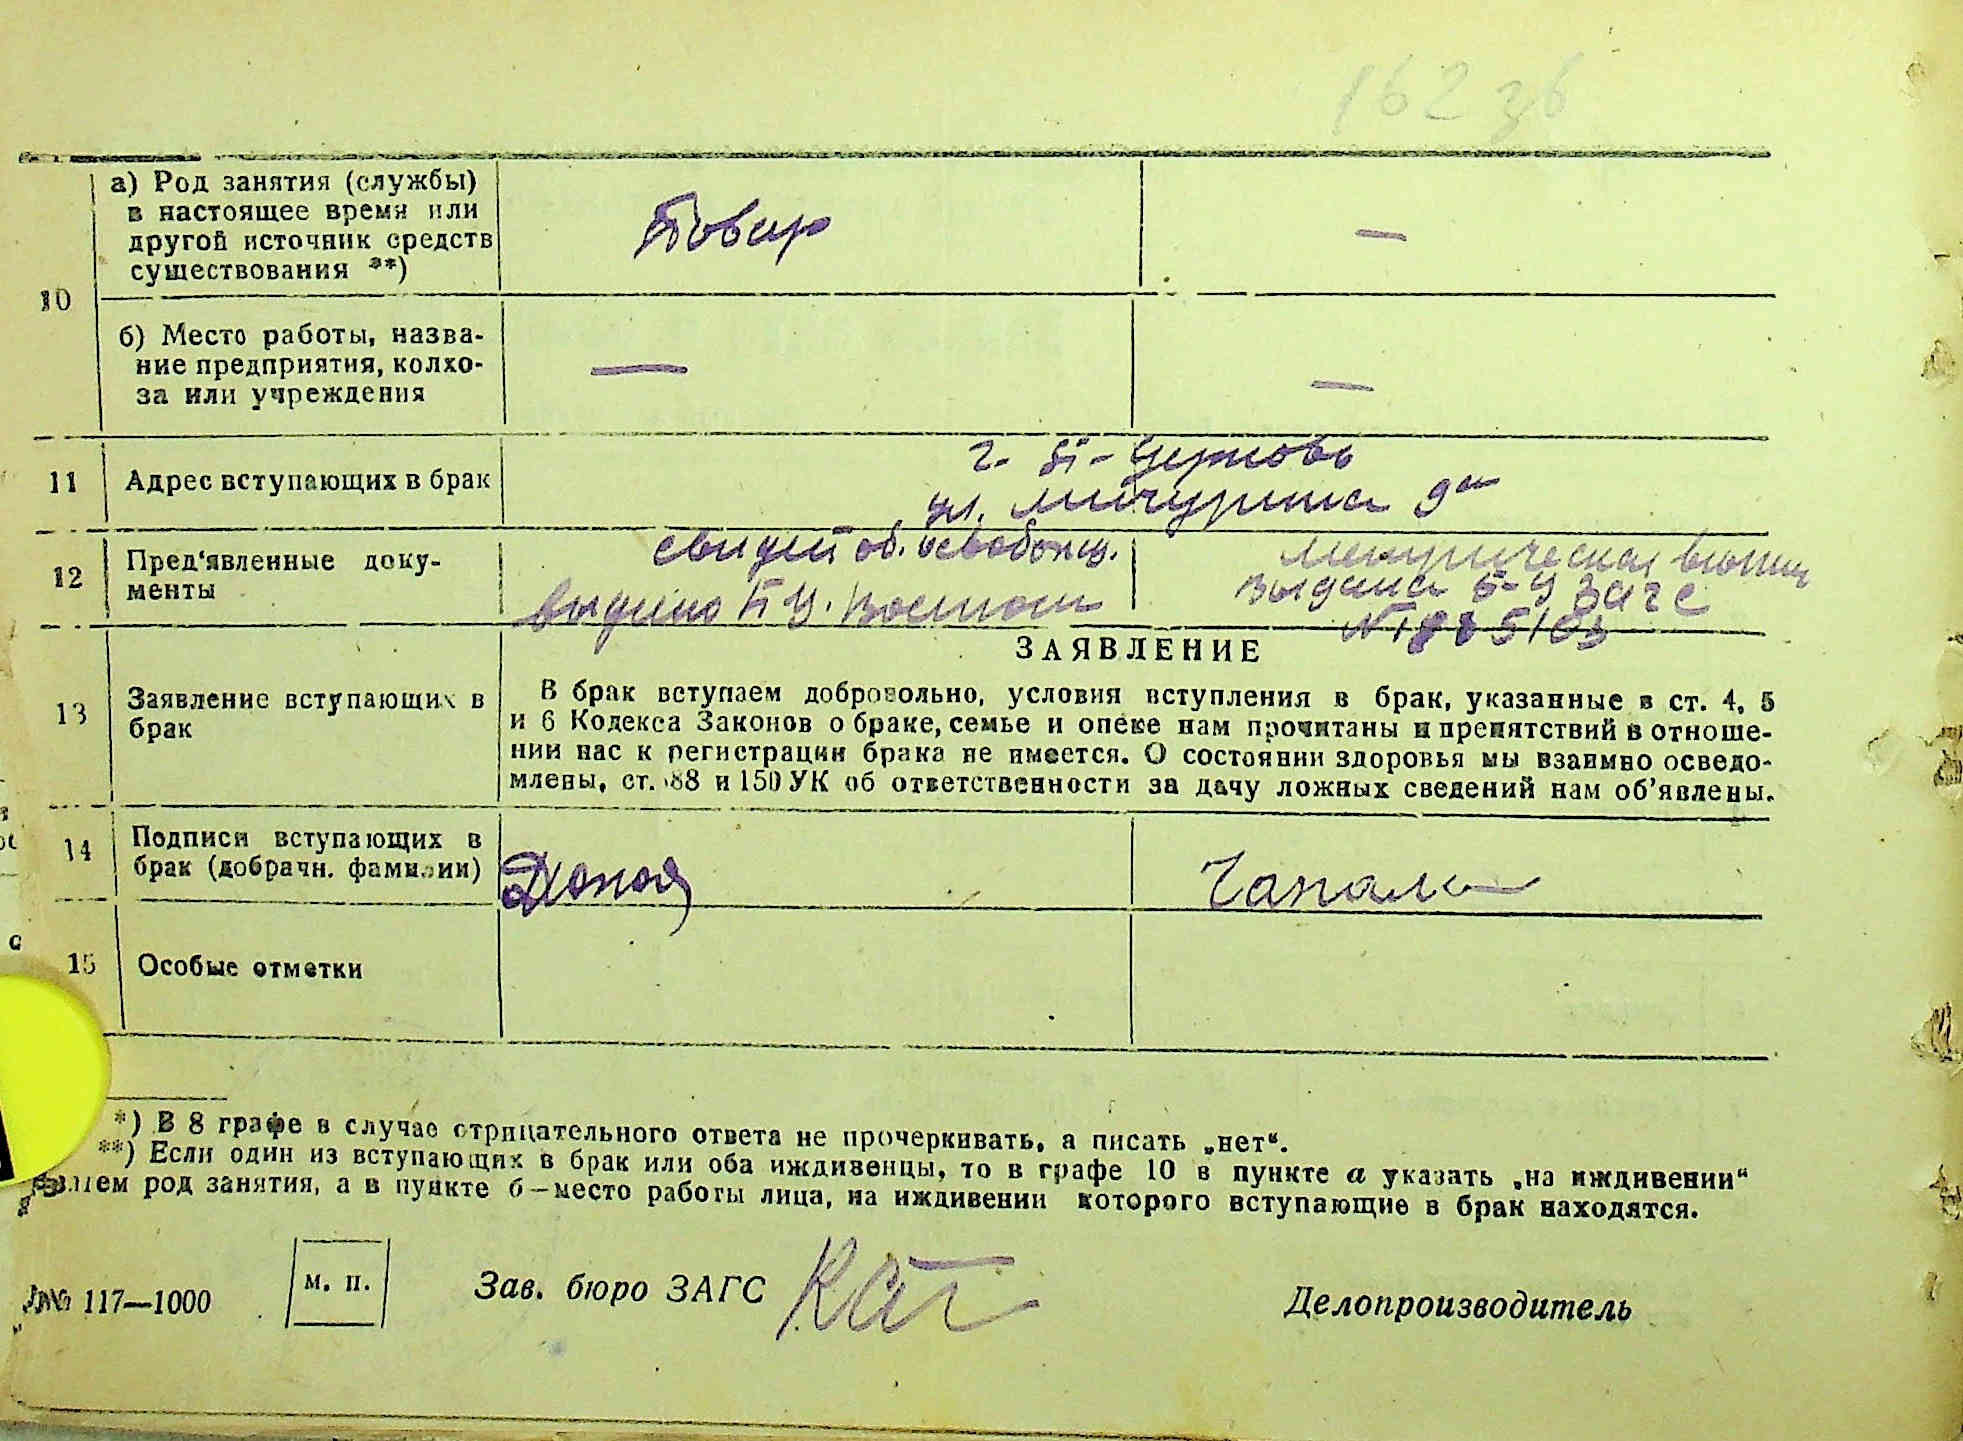 162 зб
а) Род занятия (службы)
в настоящее время или
другой источник средств
существования **)
Повар
—
10
б) Место работы, назва-
ние предприятия, колхо-
за или учреждения
—
—
11
Адрес вступающих в брак
г. Б-Церковь
ул. Мичурина 9а
12
Пред'явленные доку-
менты
свидет об. освобожд.
выдано БЦ.
метрическая
выдана Б-Ц Загс
ЗАЯВЛЕНИЕ
13
Заявление вступающих в
брак
В брак вступаем добровольно, условия вступления в брак, указанные в ст. 4, 5
и 6 Кодекса Законов о браке, семье и опеке нам прочитаны и препятствий в отноше-
нии нас к регистрации брака не имеется. О состоянии здоровья мы взаимно осведо-
млены, ст. 88 и 150 УК об ответственности за дачу ложных сведений нам об'явлены.
14
Подписи вступающих в
брак (добрачн. фамилии)
Чапала
15
Особые отметки
*) В 8 графе в случае отрицательного ответа не прочеркивать, а писать „нет“.
**) Если один из вступающих в брак или оба иждивенцы, то в графе 10 в пункте а указать „на иждивении“
род занятия, а в пункте б—место работы лица, на иждивении которого вступающие в брак находятся.
№ 117—1000
м. п.
Зав. бюро ЗАГС
Делопроизводитель